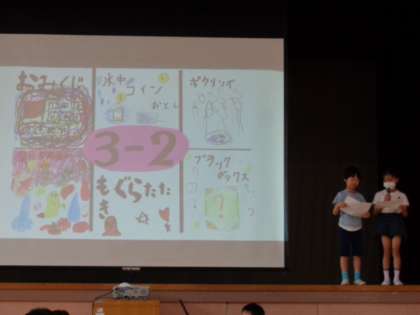 おみくじ
氷中
コイン
おとし
ボウリング
3-2
もぐらたた
き
ブラック
ボックス
?